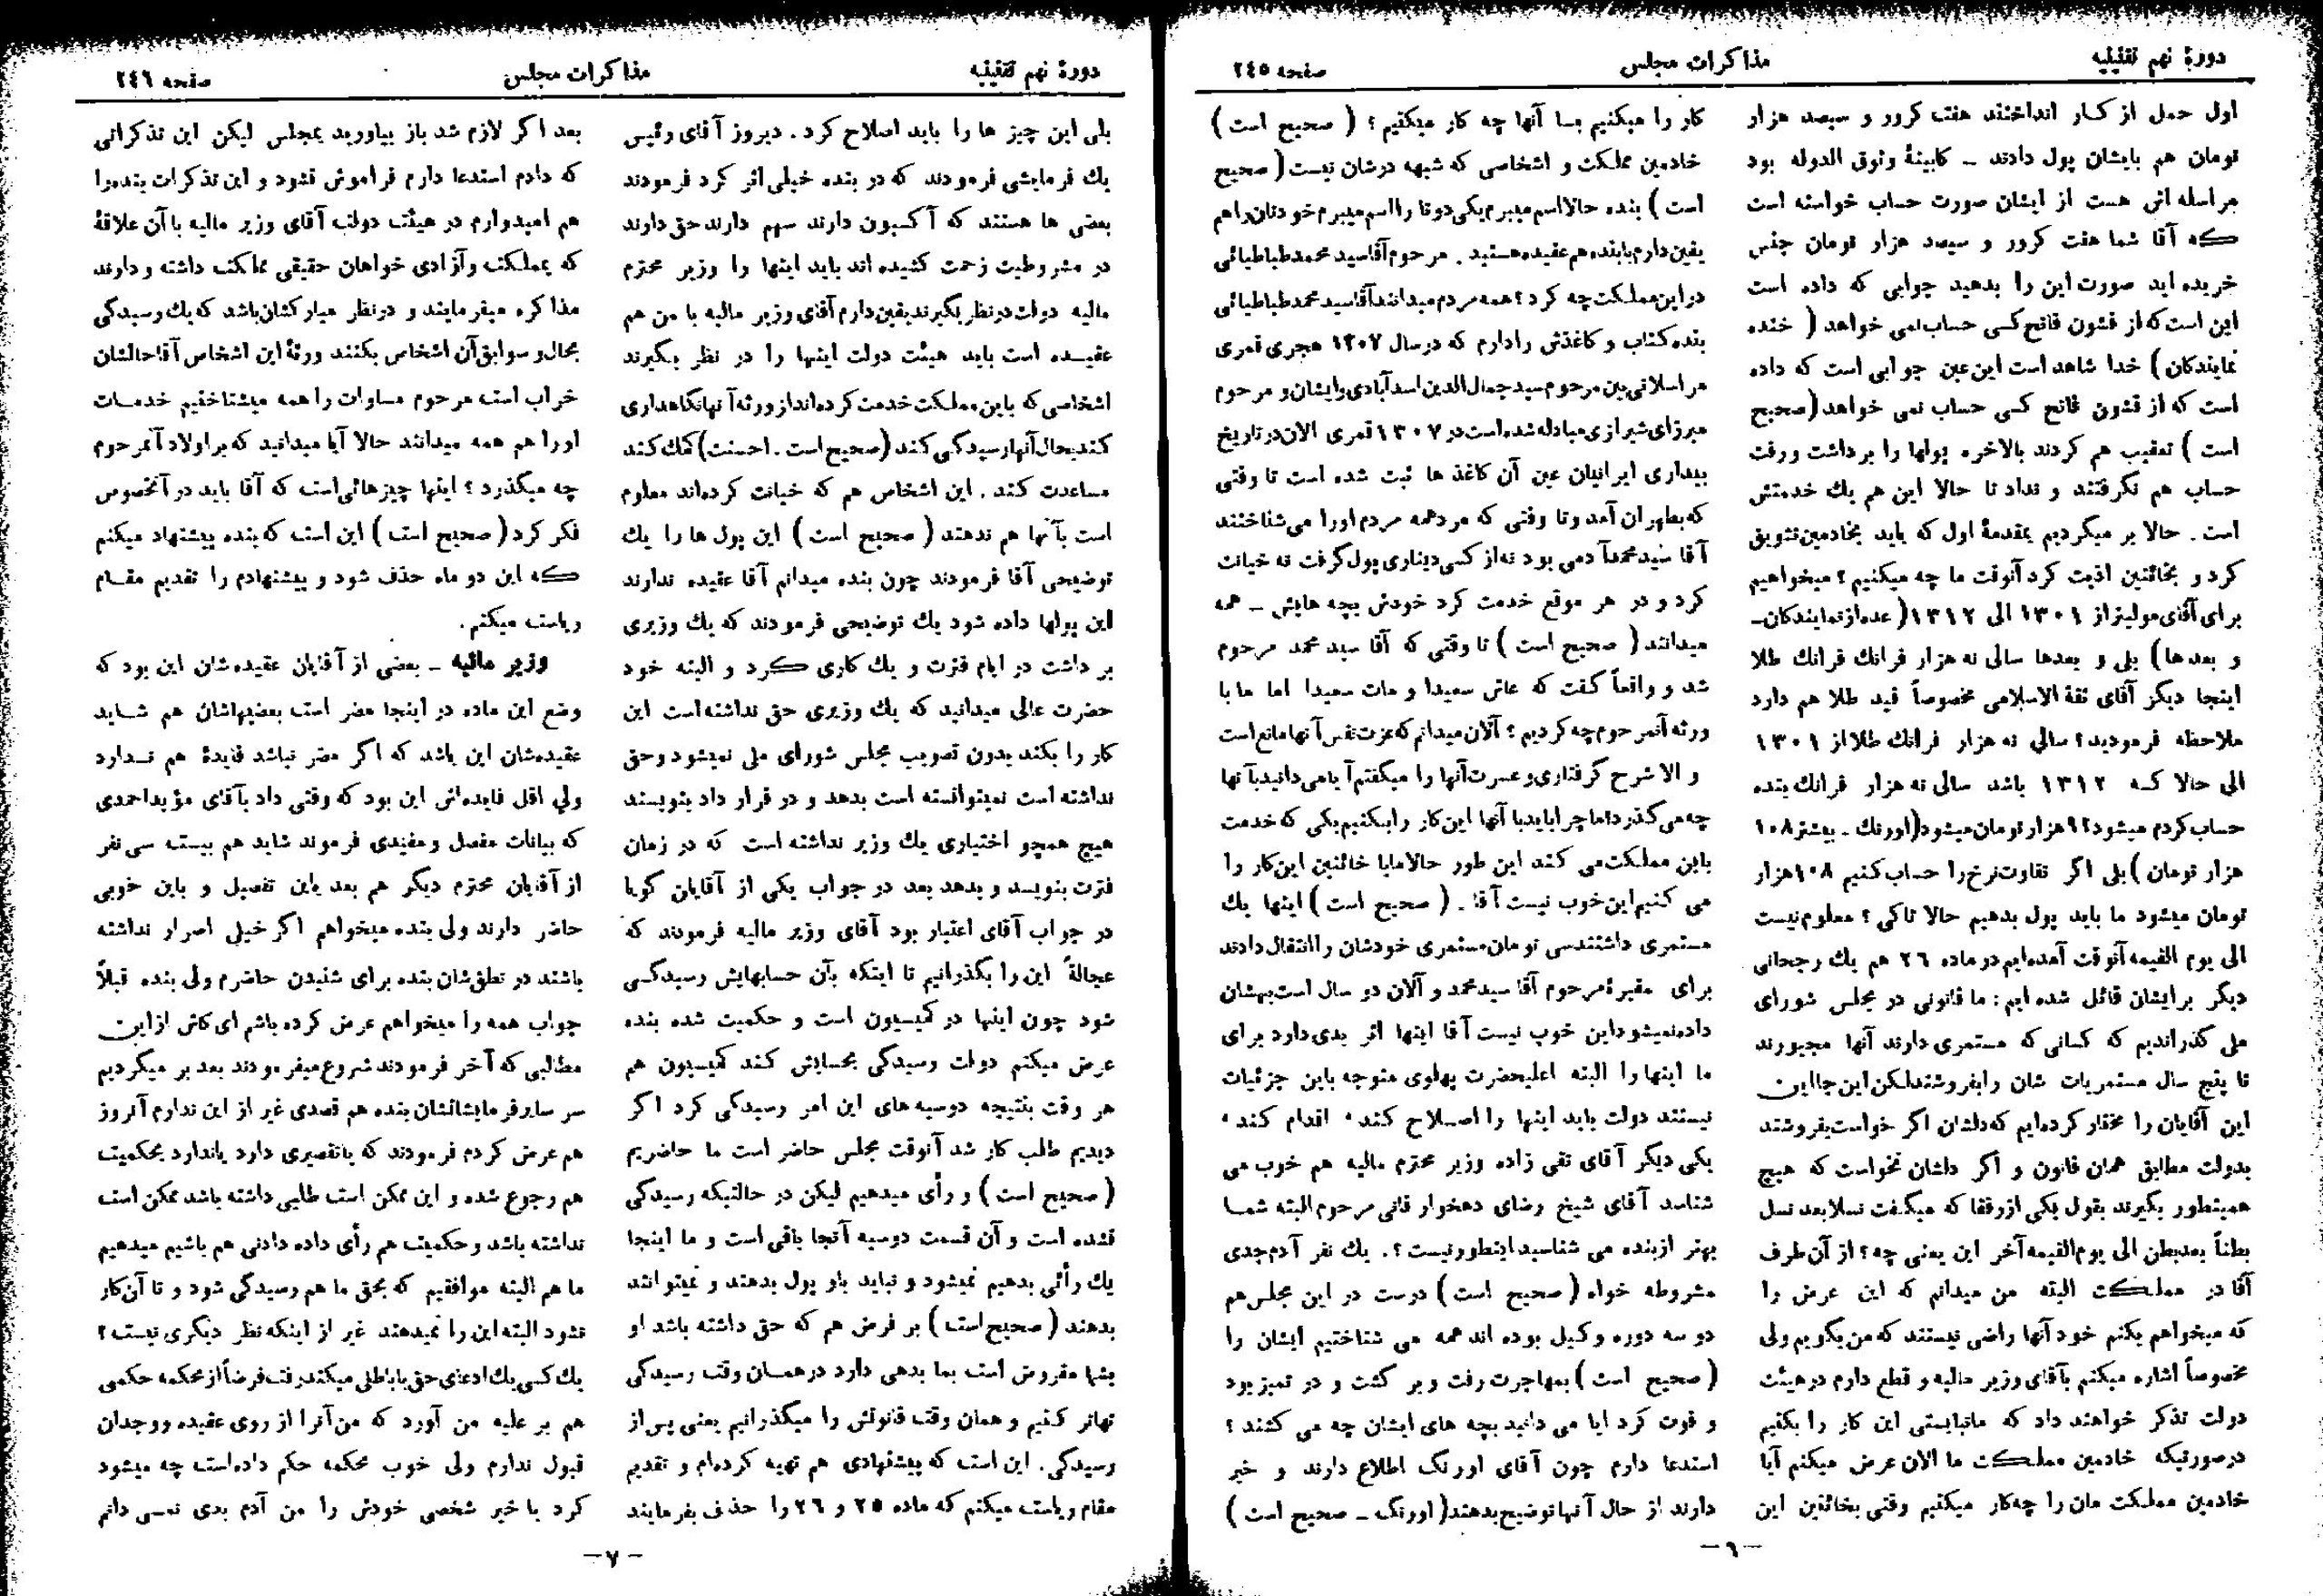 دورهٔ نهم تقنینیه
مذاکرات مجلس
صفحه ۲٤٥
اول حمل از کار انداختند هفت کرور و سیصد هزار
تومان هم بایشان پول دادند ـ کابینهٔ وثوق الدوله بود
مراسله اش هست از ایشان صورت حساب خواسته است
که آقا شما هفت کرور و سیصد هزار تومان جنس
خریده اید صورت این را بدهید جوابی که داده است
این است که از قشون فاتح کسی حساب نمی خواهد ( خنده
نمایندگان ) خدا شاهد است این عین جوابی است که داده
است که از قشون فاتح کسی حساب نمی خواهد (صحیح
است ) تعقیب هم کردند بالاخره پولها را برداشت و رفت
حساب هم نگرفتند و نداد تا حالا این هم یك خدمتش
است . حالا بر میگردیم بمقدمهٔ اول که باید بخادمین تشویق
کرد و بخائنین اذیت کرد آنوقت ما چه میکنیم ؟ میخواهیم
برای آقای مولیتر از ۱۳۰۱ الی ۱۳۱۲ ( عده از نمایندگان ـ
و بعدها) بلی و بعدها سالی نه هزار فرانك فرانك طلا
اینجا دیگر آقای ثقة الاسلامی مخصوصاً قید طلا هم دارد
ملاحظه فرمودید؟ سالی نه هزار فرانك طلا از ۱۳۰۱
الی حالا که ۱۳۱۲ باشد سالی نه هزار فرانك بنده
حساب کردم میشود ۹۲ هزار تومان میشود (اورنگ ـ بیشتر ۱۰۸
هزار تومان ) بلی اگر تفاوت نرخ را حساب کنیم ۱۰۸ هزار
تومان میشود ما باید پول بدهیم حالا تا کی ؟ معلوم نیست
الی یوم القیمه آنوقت آمده ایم در ماده ۲٦ هم یك رجحانی
دیگر برایشان قائل شده ایم : ما قانونی در مجلس شورای
ملی گذراندیم که کسانی که مستمری دارند آنها مجبورند
تا پنج سال مستمریات شان را بفروشند لکن این جا این
این آقایان را مختار کرده ایم که دلشان اگر خواست بفروشند
بدولت مطابق همان قانون و اگر دلشان نخواست که هیچ
همینطور بگیرند بقول یکی از رفقا که میگفت نسلا بعد نسل
بطناً بعد بطن الی یوم القیمه آخر این یعنی چه؟ از آن طرف
آقا در مملکت البته من میدانم که این عرض را
که میخواهم بکنم خود آنها راضی نیستند که من بگویم ولی
مخصوصاً اشاره میکنم بآقای وزیر مالیه و قطع دارم در هیئت
دولت تذکر خواهند داد که مانبایستی این کار را بکنیم
در صورتیکه خادمین مملکت ما الان عرض میکنم آیا
خادمین مملکت مان را چه کار میکنیم وقتی بخائنین این
کار را میکنیم بـا آنها چه کار میکنیم ؟ ( صحیح است )
خادمین مملکت و اشخاصی که شبهه درشان نیست ( صحیح
است ) بنده حالا اسم میبرم یکی دوتا را اسم میبرم خودتان راهم
یقین دارم با بنده هم عقیده هستید . مرحوم آقا سید محمد طباطبائی
در این مملکت چه کرد ؟ همه مردم میدانند آقا سید محمد طباطبائی
بنده کتاب و کاغذش را دارم که در سال ۱۳۰۷ هجری قمری
مراسلاتی بین مرحوم سید جمال الدین اسد آبادی و ایشان و مرحوم
میرزای شیرازی مبادله شده است در ۱۳۰۷ قمری الان در تاریخ
بیداری ایرانیان عین آن کاغذ ها ثبت شده است تا وقتی
که بطهران آمد و تا وقتی که مرد همه مردم او را می شناختند
آقا سید محمد آدمی بود نه از کسی دیناری پول گرفت نه خیانت
کرد و در هر موقع خدمت کرد خودش بچه هایش ـ همه
میدانند ( صحیح است ) تا وقتی که آقا سید محمد مرحوم
شد و واقعاً گفت که عاش سعیدا و مات سعیدا اما ما با
ورثه آنمرحوم چه کردیم ؟ آلان میدانم که عزت نفس آنها مانع است
و الا شرح گرفتاری و عسرت آنها را میگفتم آیا می دانید بآنها
چه می گذرد اما چرا باید با آنها این کار را بکنیم یکی که خدمت
باین مملکت می کند این طور حالا ما با خائنین این کار را
می کنیم این خوب نیست آقا . ( صحیح است ) اینها یك
مستمری داشتند سی تومان مستمری خودشان را انتقال دادند
برای مقبرهٔ مرحوم آقا سید محمد و آلان دو سال است بهشان
داده نمیشود این خوب نیست آقا اینها اثر بدی دارد برای
ما اینها را البته اعلیحضرت پهلوی متوجه باین جزئیات
نیستند دولت باید اینها را اصلاح کند ، اقدام کند ،
یکی دیگر آقای تقی زاده وزیر محترم مالیه هم خوب می
شناسد آقای شیخ رضای دهخوارقانی مرحوم البته شمـا
بهتر از بنده می شناسید اینطور نیست ؟ . یك نفر آدم جدی
مشروطه خواه ( صحیح است ) درست در این مجلس هم
دو سه دوره وکیل بوده اند همه می شناختیم ایشان را
( صحیح است ) بمهاجرت رفت و بر گشت و در تمیز بود
و فوت کرد ایا می دانید بچه های ایشان چه می کشند ؟
استدعا دارم چون آقای اورنگ اطلاع دارند و خبر
دارند از حال آنها توضیح بدهند ( اورنگ ـ صحیح است )
ـ ٦ ـ
دورهٔ نهم تقنینیه
مذاکرات مجلس
صفحه ۲٤٦
بلی این چیز ها را باید اصلاح کرد . دیروز آقای رئیس
یك فرمایشی فرمودند که در بنده خیلی اثر کرد فرمودند
بعضی ها هستند که آکسیون دارند سهم دارند حق دارند
در مشروطیت زحمت کشیده اند باید اینها را وزیر محترم
مالیه دولت در نظر بگیرند یقین دارم آقای وزیر مالیه با من هم
عقیـده است باید هیئت دولت اینها را در نظر بگیرند
اشخاصی که باین مملکت خدمت کرده اند از ورثه آنها نگاهداری
کند بحال آنها رسیدگی کند (صحیح است . احسنت) کمك کند
مساعدت کند . این اشخاص هم که خیانت کرده اند معلوم
است بآنها هم ندهند ( صحیح است ) این پول ها را یك
توضیحی آقا فرمودند چون بنده میدانم آقا عقیده ندارند
این پولها داده شود یك توضیحی فرمودند که یك وزیری
بر داشت در ایام فترت و یك کاری کرد و البته خود
حضرت عالی میدانید که یك وزیری حق نداشته است این
کار را بکند بدون تصویب مجلس شورای ملی نمیشود و حق
نداشته است نمیتوانسته است بدهد و در قرار داد بنویسند
هیچ همچو اختیاری یك وزیر نداشته است که در زمان
فترت بنویسد و بدهد بعد در جواب یکی از آقایان گویا
در جواب آقای اعتبار بود آقای وزیر مالیه فرمودند که
عجالةً این را بگذرانیم تا اینکه بآن حسابهایش رسیدگی
شود چون اینها در کمیسیون است و حکمیت شده بنده
عرض میکنم دولت رسیدگی بحسابش کند کمیسیون هم
هر وقت بنتیجه دوسیه های این امر رسیدگی کرد اگر
دیدیم طلب کار شد آنوقت مجلس حاضر است ما حاضریم
( صحیح است ) و رأی میدهیم لیکن در حالتیکه رسیدگی
نشده است و آن قسمت دوسیه آنجا باقی است و ما اینجا
یك رأئی بدهیم نمیشود و نباید باو پول بدهند و نمیتوانند
بدهند ( صحیح است ) بر فرض هم که حق داشته باشد او
بشما مقروض است بما بدهی دارد در همـان وقت رسیدگی
تهاتر کنیم و همان وقت قانونش را میگذرانیم یعنی پس از
رسیدگی . این است که پیشنهادی هم تهیه کرده ام و تقدیم
مقام ریاست میکنم که ماده ۲٥ و ۲٦ را حذف بفرمایند
بعد اگر لازم شد باز بیاورید بمجلس لیکن این تذکراتی
که دادم استدعا دارم فراموش نشود و این تذکرات بنده را
هم امیدوارم در هیئت دولت آقای وزیر مالیه با آن علاقهٔ
که بمملکت و آزادی خواهان حقیقی مملکت داشته و دارند
مذاکره میفرمایند و در نظر مبارکشان باشد که یك رسیدگی
بحال و سوابق آن اشخاص بکنند ورثهٔ این اشخاص آقا حالشان
خراب است مرحوم مساوات را همه میشناختیم خدمـات
او را هم همه میدانند حالا آیا میدانید که بر اولاد آنمرحوم
چه میگذرد ؟ اینها چیزهائی است که آقا باید در آنخصوص
فکر کرد ( صحیح است ) این است که بنده پیشنهاد میکنم
که این دو ماده حذف شود و پیشنهادم را تقدیم مقـام
ریاست میکنم .
وزیر مالیه ـ بعضی از آقایان عقیده شان این بود که
وضع این ماده در اینجا مضر است بعضیهاشان هم شـاید
عقیده شان این باشد که اگر مضر نباشد فایدهٔ هم نـدارد
ولی اقل فایده اش این بود که وقتی داد بآقای مؤید احمدی
که بیانات مفصل و مفیدی فرموند شاید هم بیست سی نفر
از آقایان محترم دیگر هم بعد باین تفصیل و باین خوبی
حاضر دارند ولی بنده میخواهم اگر خیلی اصرار نداشته
باشند در نطق شان بنده برای شنیدن حاضرم ولی بنده قبلاً
جواب همه را میخواهم عرض کرده باشم ای کاش از این
مطالبی که آخر فرمودند شروع میفرمودند بعد بر میگردیم
سر سایر فرمایشاتشان بنده هم قصدی غیر از این ندارم آنروز
هم عرض کردم فرمودند که یا تقصیری دارد یا ندارد بحکمیت
هم رجوع شده و این ممکن است طلبی داشته باشد ممکن است
نداشته باشد و حکمیت هم رأی داده دادنی هم باشیم میدهیم
ما هم البته موافقیم که بحق ما هم رسیدگی شود و تا آن کار
نشود البته این را نمیدهند غیر از اینکه نظر دیگری نیست ؟
یك کسی یك ادعای حق یا باطلی میکند رفت فرضاً از محکمه حکمی
هم بر علیه من آورد که من آنرا از روی عقیده و وجدان
قبول ندارم ولی خوب محکمه حکم داده است چه میشود
کرد یا خیر شخصی خودش را من آدم بدی نمـی دانم
ـ ۷ ـ